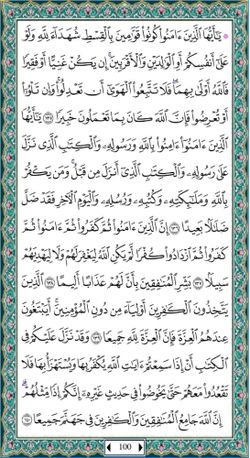 ۞ يَٰٓأَيُّهَا ٱلَّذِينَ ءَامَنُوا۟ كُونُوا۟ قَوَّٰمِينَ بِٱلْقِسْطِ شُهَدَآءَ لِلَّهِ وَلَوْ
عَلَىٰٓ أَنفُسِكُمْ أَوِ ٱلْوَٰلِدَيْنِ وَٱلْأَقْرَبِينَ إِن يَكُنْ غَنِيًّا أَوْ فَقِيرًا
فَٱللَّهُ أَوْلَىٰ بِهِمَا فَلَا تَتَّبِعُوا۟ ٱلْهَوَىٰٓ أَن تَعْدِلُوا۟ وَإِن تَلْوُۥٓا۟
أَوْ تُعْرِضُوا۟ فَإِنَّ ٱللَّهَ كَانَ بِمَا تَعْمَلُونَ خَبِيرًا ١٣٥ يَٰٓأَيُّهَا
ٱلَّذِينَ ءَامَنُوٓا۟ ءَامِنُوا۟ بِٱللَّهِ وَرَسُولِهِۦ وَٱلْكِتَٰبِ ٱلَّذِى نَزَّلَ
عَلَىٰ رَسُولِهِۦ وَٱلْكِتَٰبِ ٱلَّذِىٓ أَنزَلَ مِن قَبْلُ وَمَن يَكْفُرْ
بِٱللَّهِ وَمَلَٰٓئِكَتِهِۦ وَكُتُبِهِۦ وَرُسُلِهِۦ وَٱلْيَوْمِ ٱلْءَاخِرِ فَقَدْ ضَلَّ
ضَلَٰلًۢا بَعِيدًا ١٣٦ إِنَّ ٱلَّذِينَ ءَامَنُوا۟ ثُمَّ كَفَرُوا۟ ثُمَّ ءَامَنُوا۟ ثُمَّ
كَفَرُوا۟ ثُمَّ ٱزْدَادُوا۟ كُفْرًا لَّمْ يَكُنِ ٱللَّهُ لِيَغْفِرَ لَهُمْ وَلَا لِيَهْدِيَهُمْ
سَبِيلًۢا ١٣٧ بَشِّرِ ٱلْمُنَٰفِقِينَ بِأَنَّ لَهُمْ عَذَابًا أَلِيمًا ١٣٨ ٱلَّذِينَ
يَتَّخِذُونَ ٱلْكَٰفِرِينَ أَوْلِيَآءَ مِن دُونِ ٱلْمُؤْمِنِينَ أَيَبْتَغُونَ
عِندَهُمُ ٱلْعِزَّةَ فَإِنَّ ٱلْعِزَّةَ لِلَّهِ جَمِيعًا ١٣٩ وَقَدْ نَزَّلَ عَلَيْكُمْ فِى
ٱلْكِتَٰبِ أَنْ إِذَا سَمِعْتُمْ ءَايَٰتِ ٱللَّهِ يُكْفَرُ بِهَا وَيُسْتَهْزَأُ بِهَا فَلَا
تَقْعُدُوا۟ مَعَهُمْ حَتَّىٰ يَخُوضُوا۟ فِى حَدِيثٍ غَيْرِهِۦٓ إِنَّكُمْ إِذًا مِّثْلُهُمْ
إِنَّ ٱللَّهَ جَامِعُ ٱلْمُنَٰفِقِينَ وَٱلْكَٰفِرِينَ فِى جَهَنَّمَ جَمِيعًا ١٤٠
100